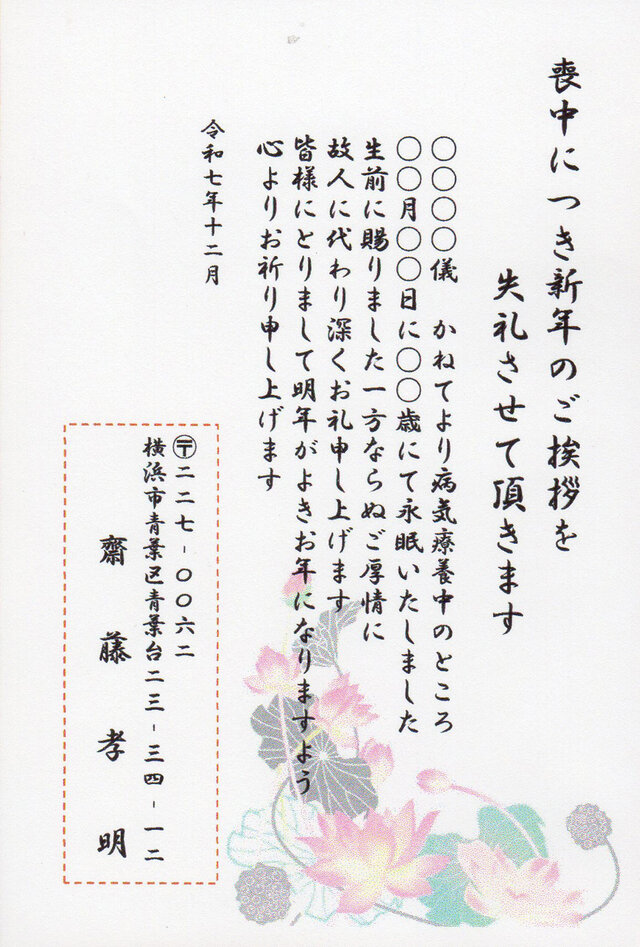 喪中につき新年のご挨拶を
失礼させて頂きます
〇〇〇〇儀　かねてより病気療養中のところ
〇〇月〇〇日に〇〇歳にて永眠いたしました
生前に賜りました一方ならぬご厚情に
故人に代わり深くお礼申し上げます
皆様にとりまして明年がよきお年になりますよう
心よりお祈り申し上げます
令和七年十二月
〒二二七-〇〇六二
横浜市青葉区青葉台二三-三四-一二
齋藤孝明